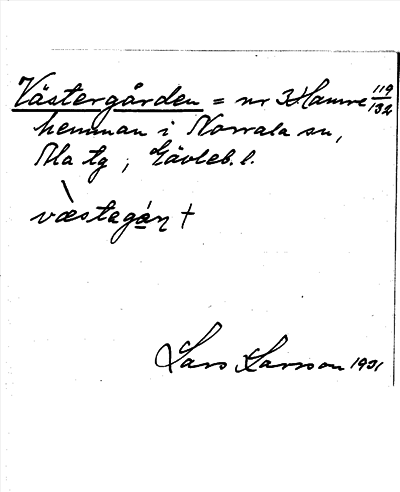 Västergården = nr 3 Hamre 119/132
hemman i Norrala sn,
Ala tg, Gävleb. l.
væ̀stagá̱ɳ †
Lars Larsson 1931